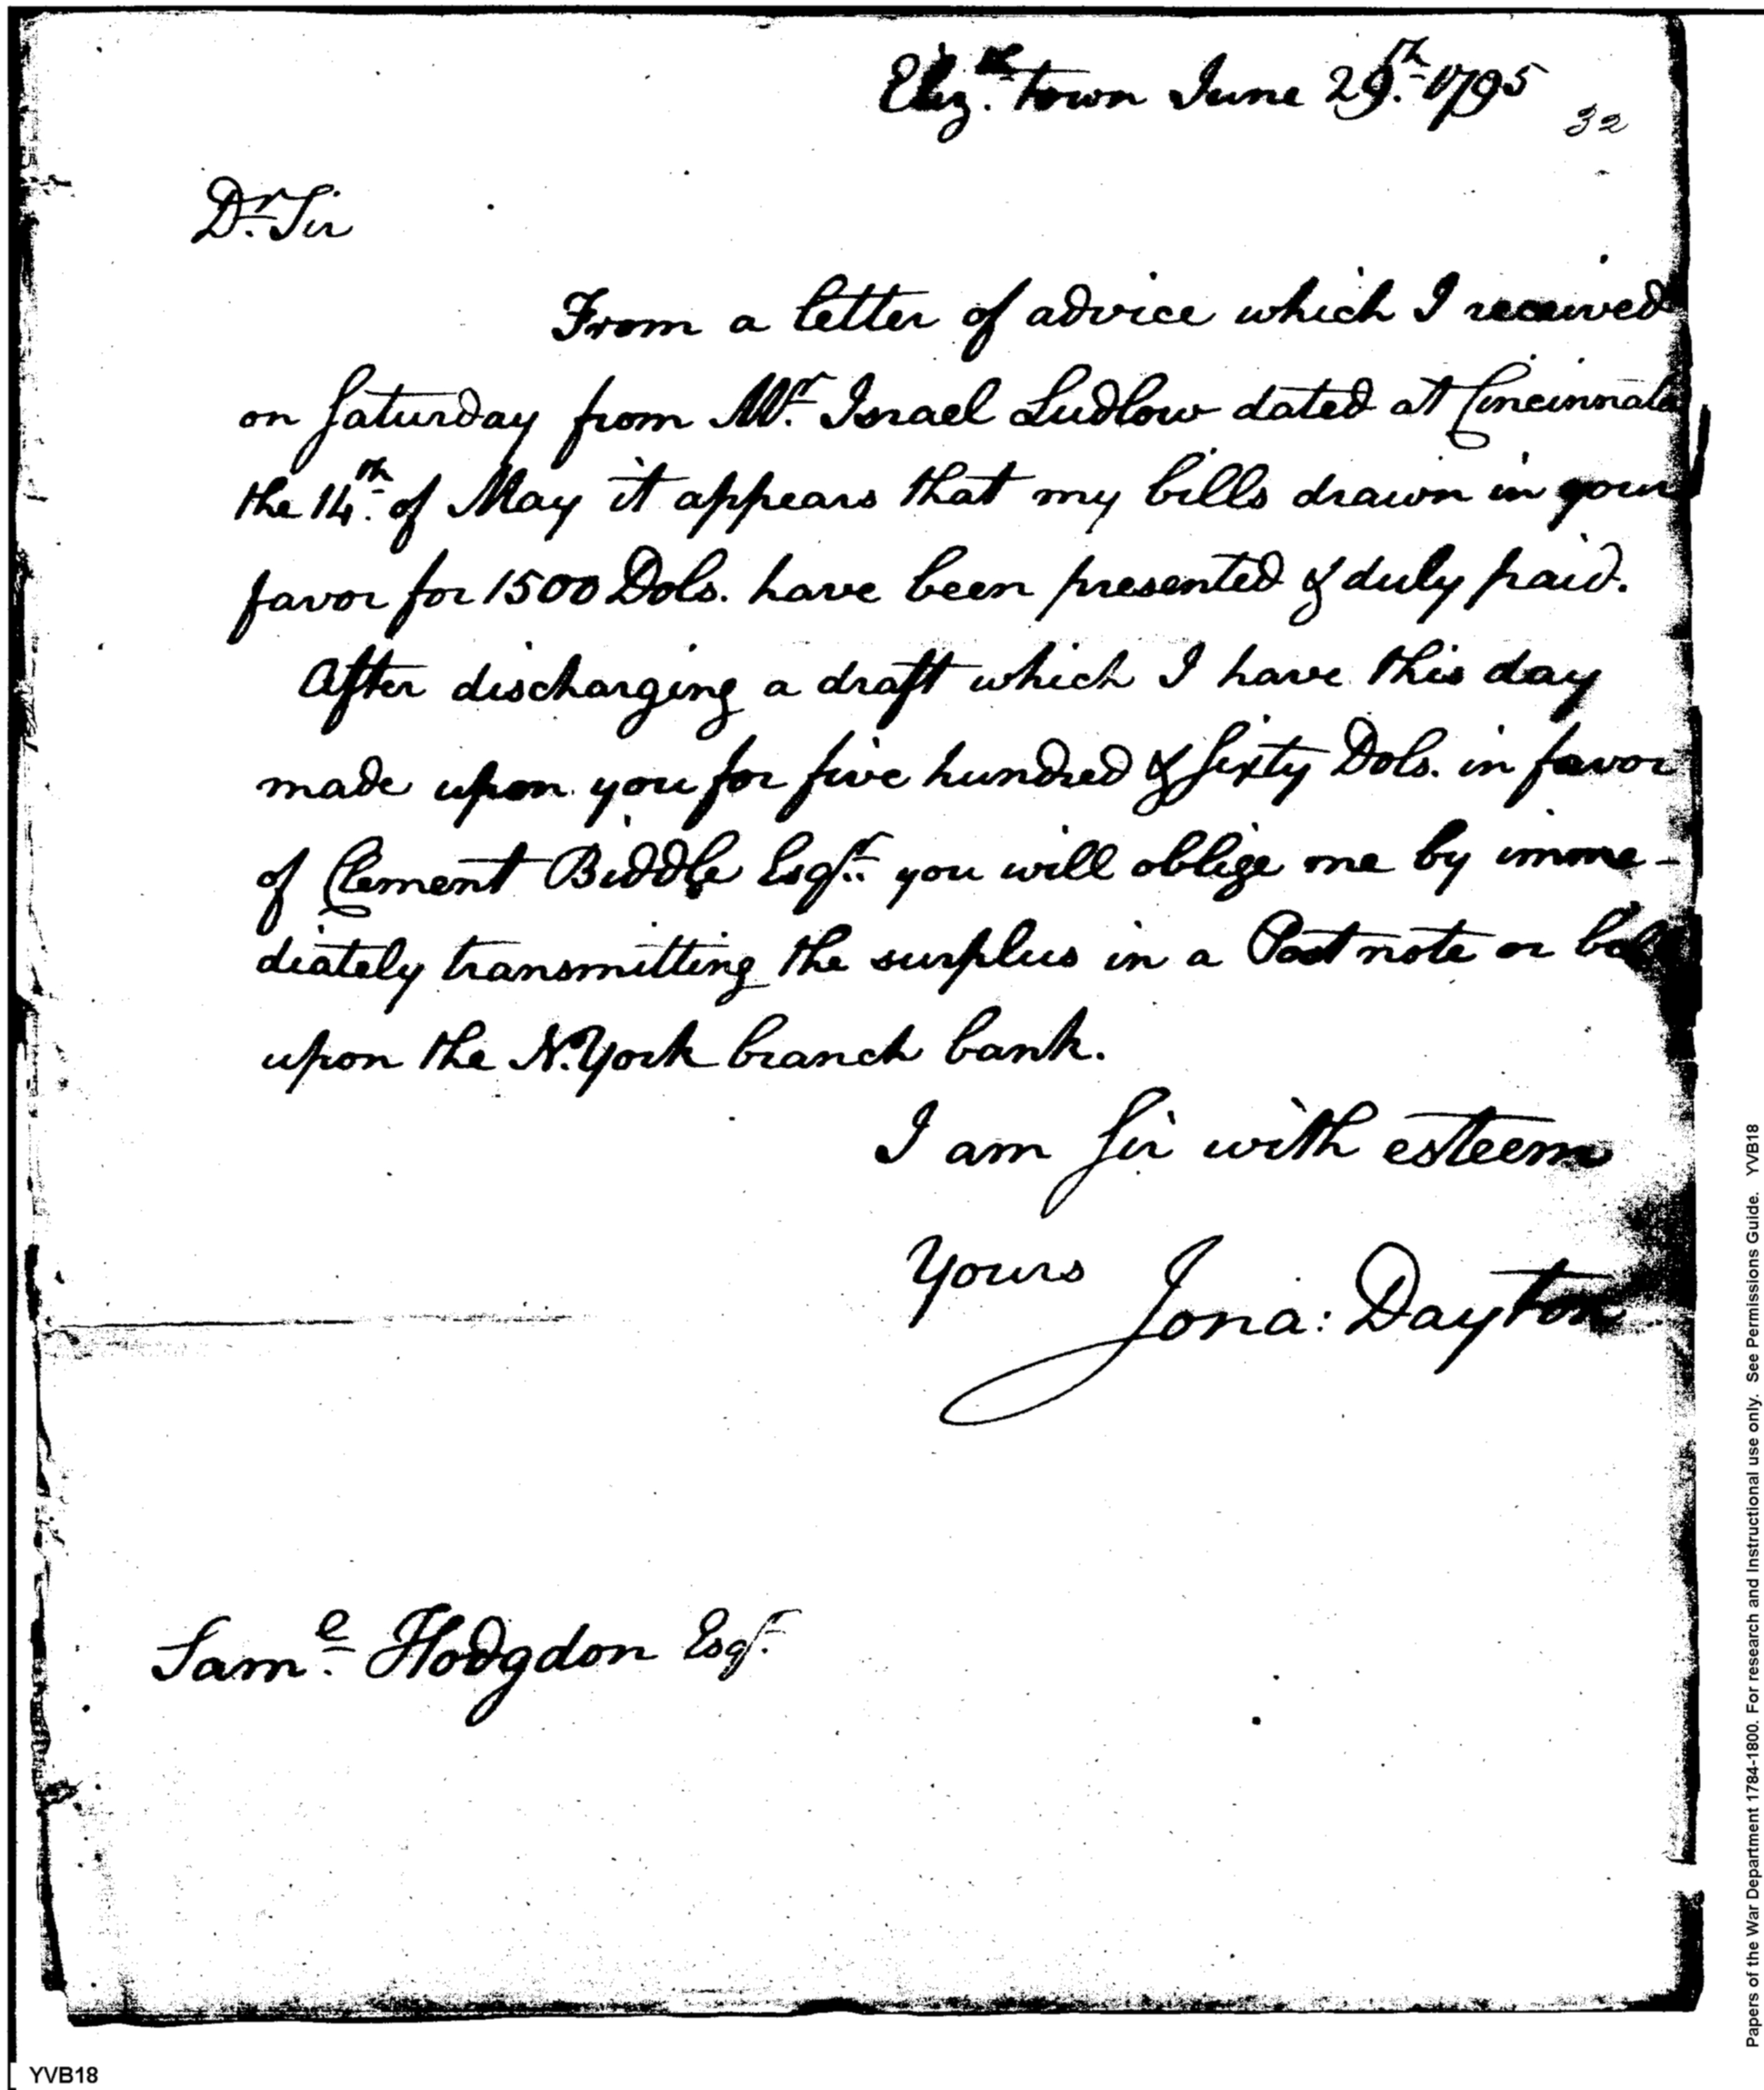 Eliz.th town June 29.th 1795
32
D.r Sir
From a letter of advice which I received
on Saturday from M.r Israel Ludlow dated at Cincinnati
the 14.th of May it appears that my bills drawn in your
favor for 1500 Dols. have been presented & duly paid.
After discharging a draft which I have this day
made upon you for five hundred & sixty Dols. in favor
of Clement Biddle Esq.r you will oblige me by imme-
diately transmitting the surplus in a Post note or
upon the N. York branch bank.
I am Sir with esteem
Yours
Jona: Dayton
Sam.l Hodgdon Esq.r
YVB18
Papers of the War Department 1784-1800. For research and Instructional use only. See Permissions Guide. YVB18